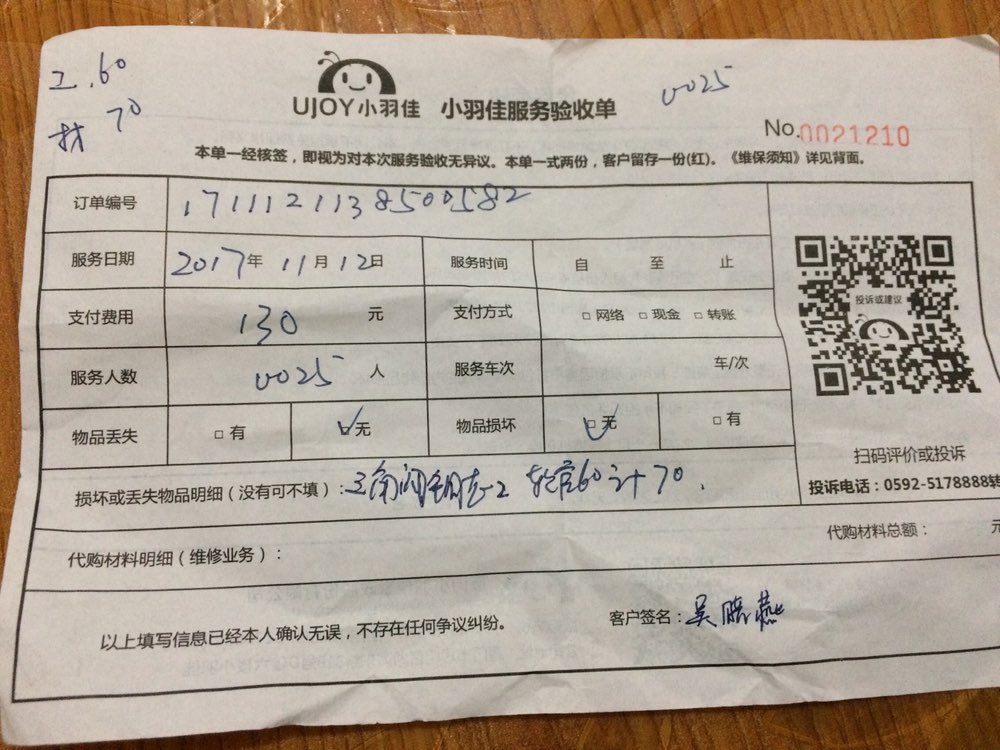 工.60
材 70
UJOY小羽佳 小羽佳服务验收单
0025
No.0021210
本单一经核签，即视为对本次服务验收无异议。本单一式两份，客户留存一份(红)。《维保须知》详见背面。
订单编号 1711121138500582
服务日期 2017年 11月 12日 服务时间 自 至 止
支付费用 130 元 支付方式 □网络 □现金 □转账
服务人数 0025 人 服务车次 车/次
物品丢失 □有 □无 物品损坏 □无 □有
投诉或建议
扫码评价或投诉
投诉电话：0592-5178888转
损坏或丢失物品明细（没有可不填）：三角阀 2 软管60计70.
代购材料明细（维修业务）： 代购材料总额： 元
以上填写信息已经本人确认无误，不存在任何争议纠纷。 客户签名：吴 燕